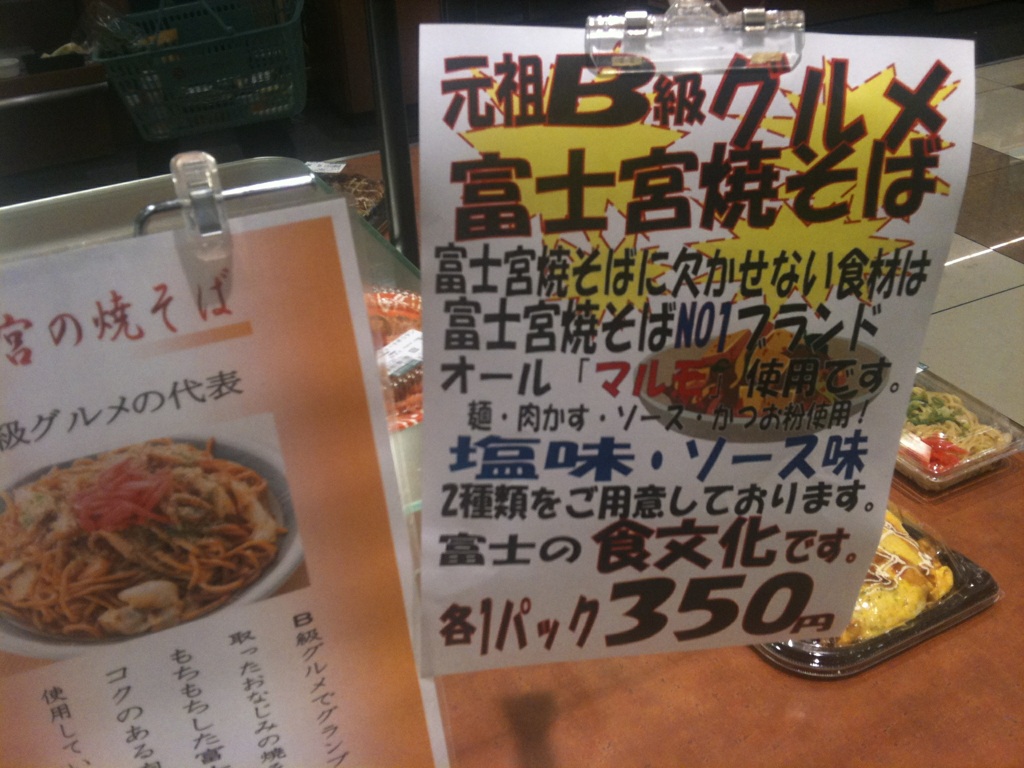 元祖B級グルメ
富士宮焼そば
富士宮焼そばに欠かせない食材は
富士宮焼そばNO1ブランド
オール「マルモ」使用です。
麺・肉かす・ソース・かつお粉使用！
塩味・ソース味
2種類をご用意しております。
富士の食文化です。
各1パック350円
宮の焼そば
級グルメの代表
B級グルメでグランプ
取ったおなじみの焼
もちもちした富
コクのある肉
使用してい